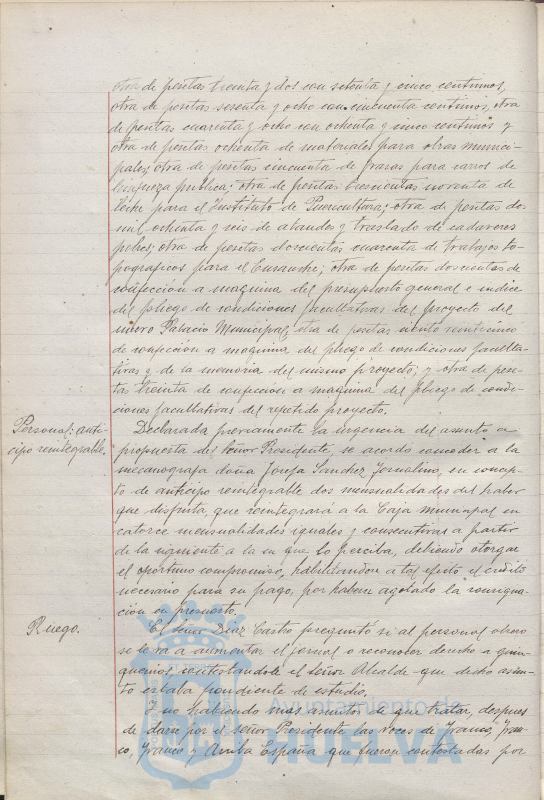 otra de pesetas treinta y dos con setenta y cinco centimos,
otra de pesetas sesenta y ocho con cincuenta centimos, otra
de pesetas cuarenta y ocho con ochenta y cinco centimos y
otra de pesetas ochenta de materiales para obras munici-
pales; otra de pesetas cincuenta de para carros de
limpieza publica; otra de pesetas trescientas noventa de
leche para el Instituto de Puericultura; otra de pesetas dos
mil ochenta y seis de ataudes y traslado de cadaveres
pobres; otra de pesetas doscientas cuarenta de trabajos to-
pograficos para el Ensanche; otra de pesetas doscientas de
confeccion a maquina del presupuesto general e indice
del pliego de condiciones facultativas del proyecto del
nuevo Palacio Municipal; otra de pesetas ciento veinticinco
de confeccion a maquina del pliego de condiciones faculta-
tivas y de la memoria del mismo proyecto; y otra de pese-
tas treinta de confeccion a maquina del pliego de condi-
ciones facultativas del repetido proyecto.
Personal: anti-
cipo reintegrable.
Declarada previamente la urgencia del asunto a
propuesta del Señor Presidente, se acordó conceder a la
mecanografa doña Josefa Sanchez en concep-
to de anticipo reintegrable dos mensualidades del haber
que disfruta, que reintegrará a la Caja municipal en
catorce mensualidades iguales y consecutivas a partir
de la siguiente a la en que lo perciba, debiendo otorgar
el oportuno compromiso, habilitandose a tal efecto el crédito
necesario para su pago, por haberse agotado la consigna-
cion en presupuesto.
Ruego.
El Señor Diaz Castro preguntó si al personal obrero
se le va a aumentar el jornal o reconocer derecho a quin-
quenios, contestandole el Señor Alcalde que dicho asun-
to estaba pendiente de estudio.
Y no habiendo mas asuntos de que tratar, despues
de darse por el Señor Presidente las voces de Franco, Fran-
co, Franco y Arriba España que fueron contestadas por
Ayuntamiento de
HUELVA